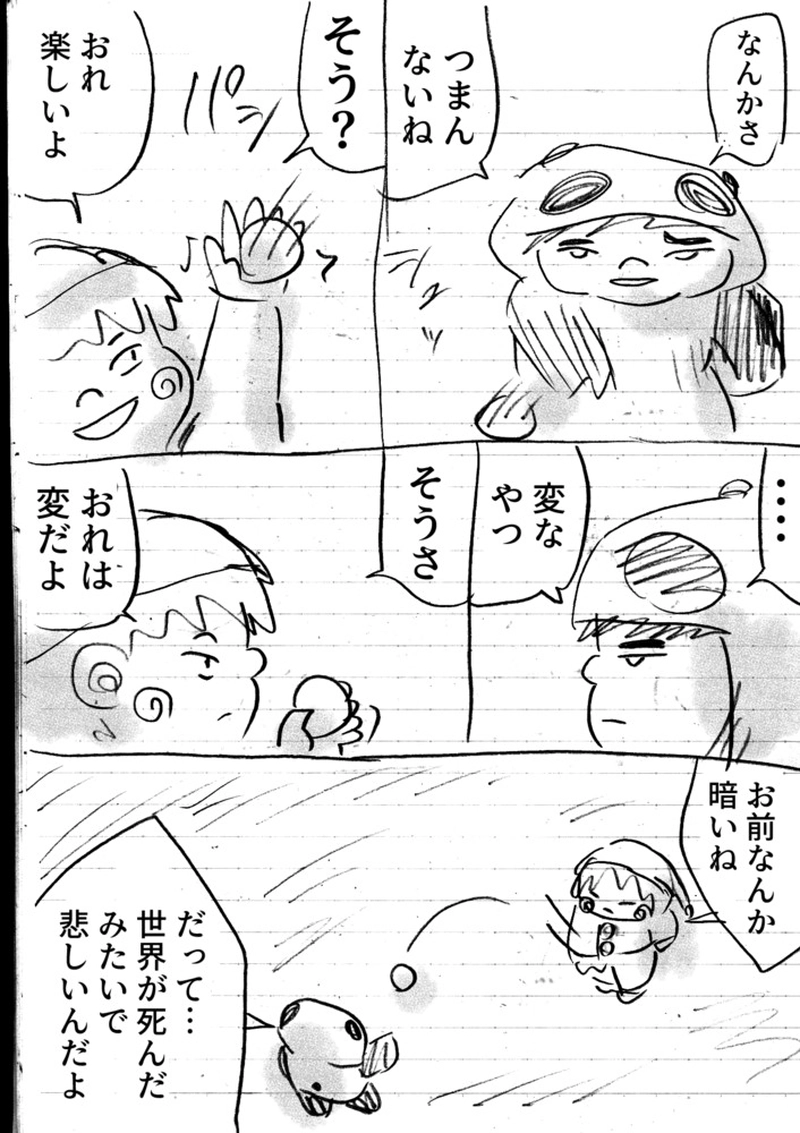 なんかさ
つまん
ないね
そう?
パシ
おれ
楽しいよ
‥‥
変な
やつ
そうさ
おれは
変だよ
お前なんか
暗いね
だって…
世界が死んだ
みたいで
悲しいんだよ